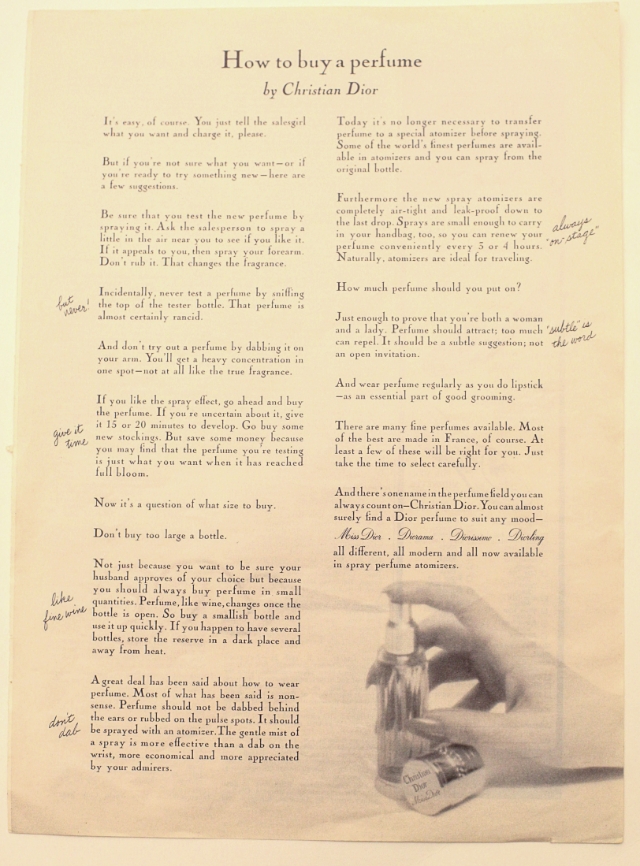 How to buy a perfume
by Christian Dior
It's easy, of course. You just tell the salesgirl
what you want and charge it, please.
But if you're not sure what you want—or if
you're ready to try something new—here are
a few suggestions.
Be sure that you test the new perfume by
spraying it. Ask the salesperson to spray a
little in the air near you to see if you like it.
If it appeals to you, then spray your forearm.
Don't rub it. That changes the fragrance.
but
never!
Incidentally, never test a perfume by sniffing
the top of the tester bottle. That perfume is
almost certainly rancid.
And don't try out a perfume by dabbing it on
your arm. You'll get a heavy concentration in
one spot—not at all like the true fragrance.
give it
time
If you like the spray effect, go ahead and buy
the perfume. If you're uncertain about it, give
it 15 or 20 minutes to develop. Go buy some
new stockings. But save some money because
you may find that the perfume you're testing
is just what you want when it has reached
full bloom.
Now it's a question of what size to buy.
Don't buy too large a bottle.
like
fine wine
Not just because you want to be sure your
husband approves of your choice but because
you should always buy perfume in small
quantities. Perfume, like wine, changes once the
bottle is open. So buy a smallish bottle and
use it up quickly. If you happen to have several
bottles, store the reserve in a dark place and
away from heat.
don't
dab
A great deal has been said about how to wear
perfume. Most of what has been said is non-
sense. Perfume should not be dabbed behind
the ears or rubbed on the pulse spots. It should
be sprayed with an atomizer. The gentle mist of
a spray is more effective than a dab on the
wrist, more economical and more appreciated
by your admirers.
Today it's no longer necessary to transfer
perfume to a special atomizer before spraying.
Some of the world's finest perfumes are avail-
able in atomizers and you can spray from the
original bottle.
Furthermore the new spray atomizers are
completely air-tight and leak-proof down to
the last drop. Sprays are small enough to carry
in your handbag, too, so you can renew your
perfume conveniently every 3 or 4 hours.
Naturally, atomizers are ideal for traveling.
always
"on-stage"
How much perfume should you put on?
Just enough to prove that you're both a woman
and a lady. Perfume should attract; too much
can repel. It should be a subtle suggestion; not
an open invitation.
"subtle" is
the word
And wear perfume regularly as you do lipstick
—as an essential part of good grooming.
There are many fine perfumes available. Most
of the best are made in France, of course. At
least a few of these will be right for you. Just
take the time to select carefully.
And there's one name in the perfume field you can
always count on—Christian Dior. You can almost
surely find a Dior perfume to suit any mood—
Miss Dior . Diorama . Diorissimo . Diorling
all different, all modern and all now available
in spray perfume atomizers.
Christian
Dior
Miss Dior